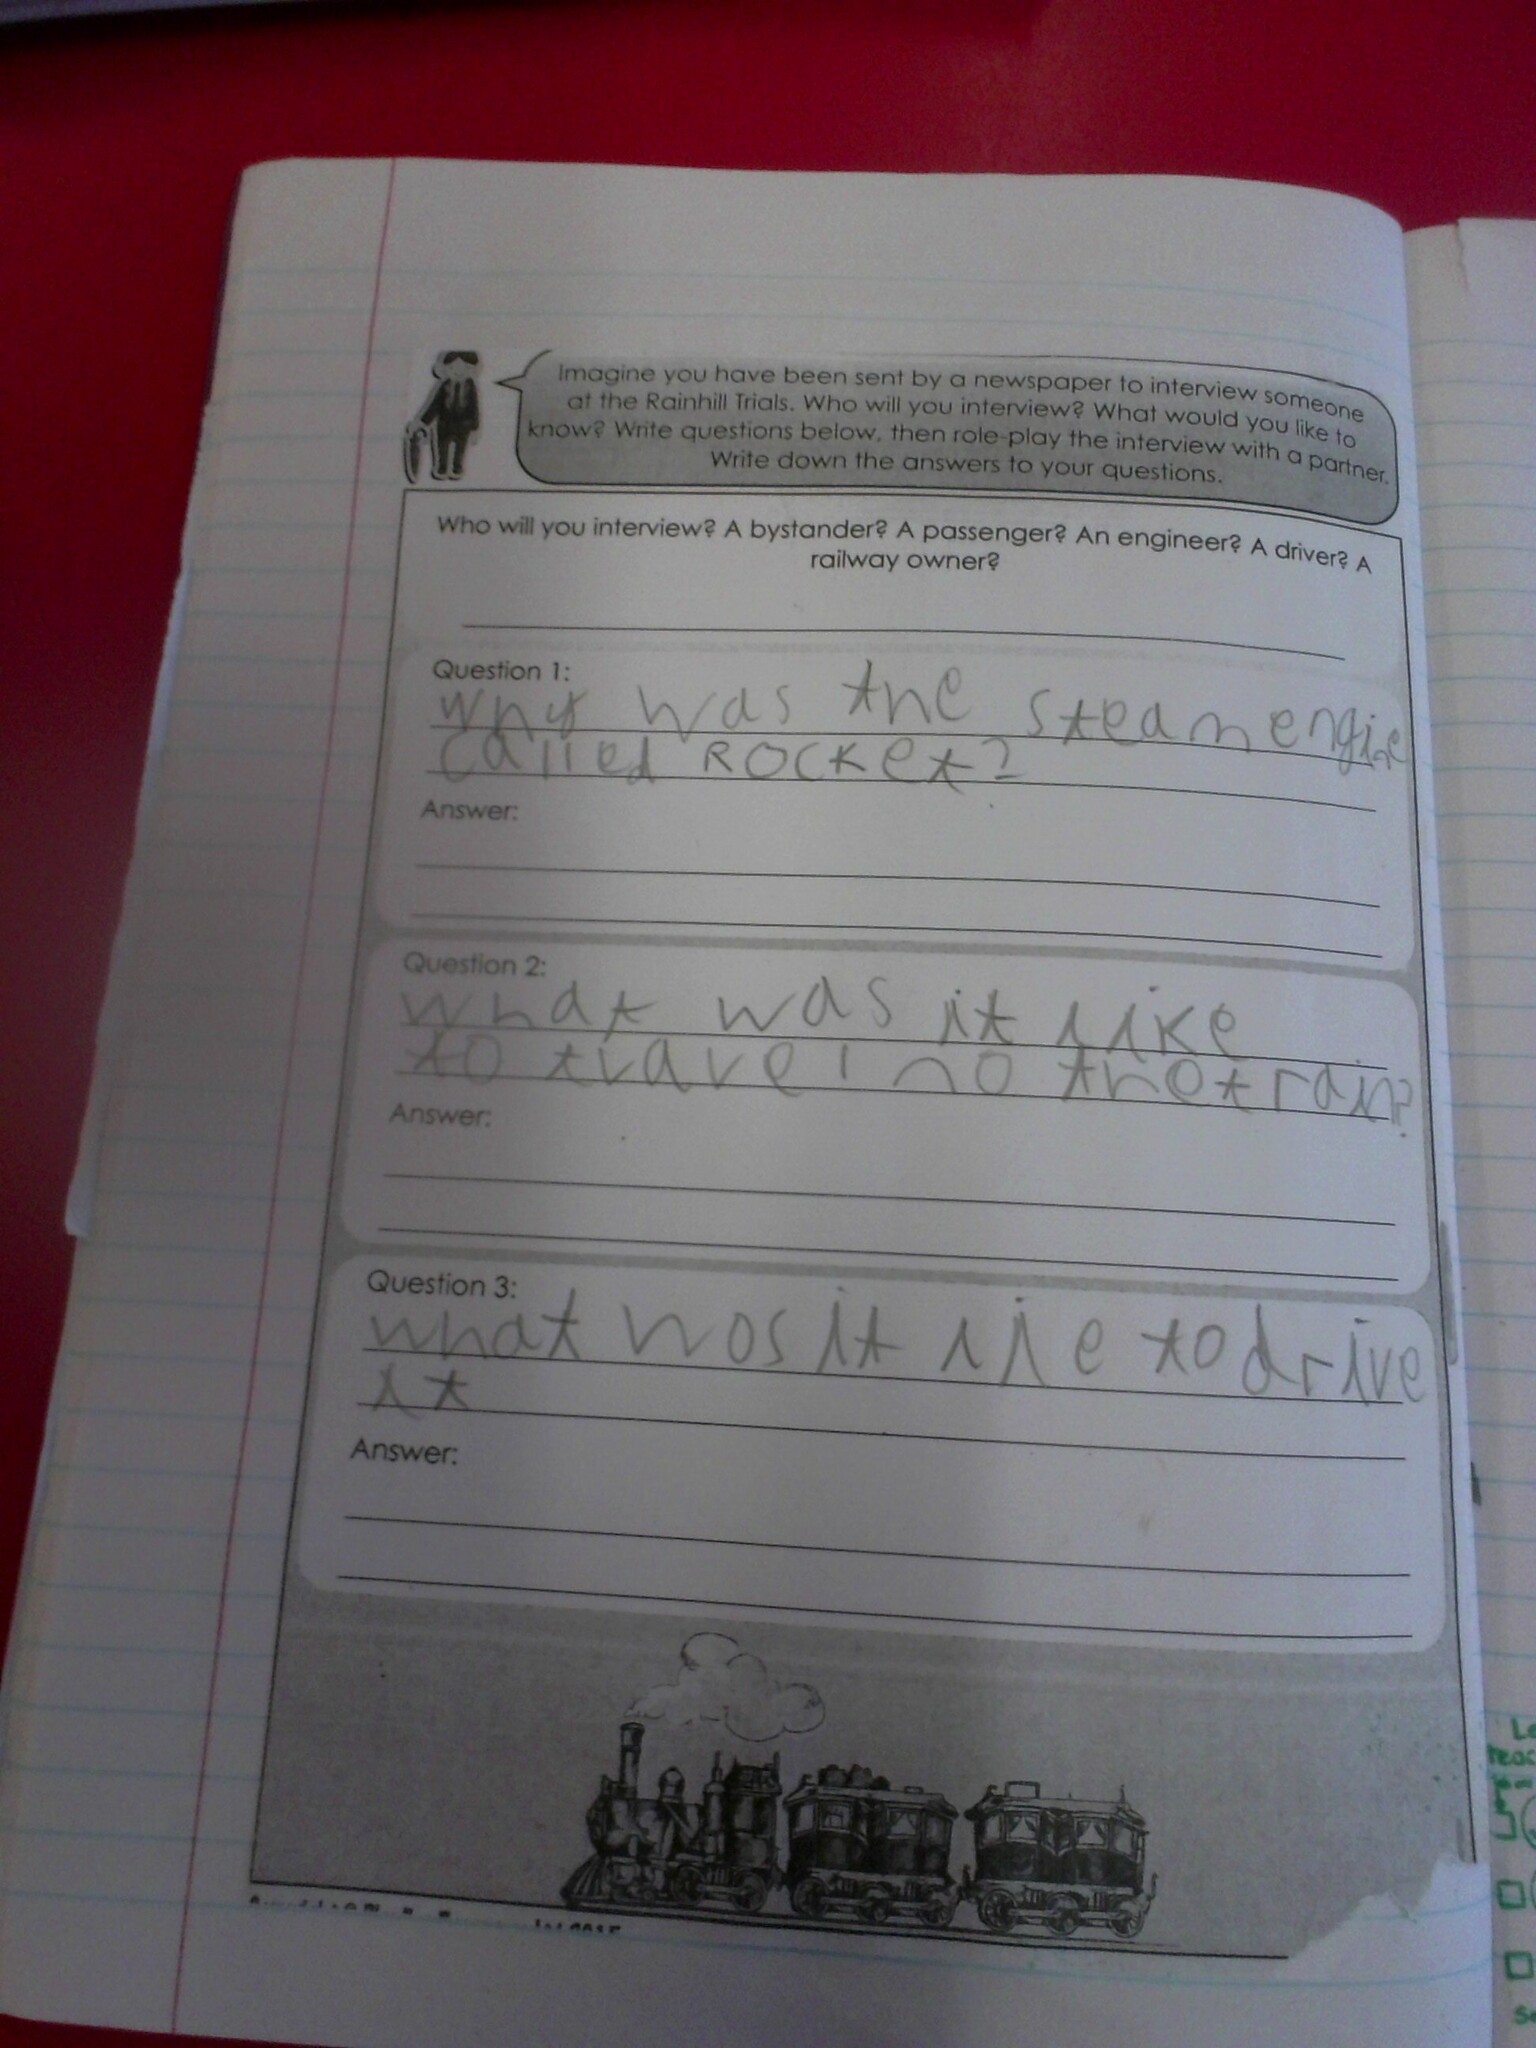 Imagine you have been sent by a newspaper to interview someone
at the Rainhill Trials. Who will you interview? What would you like to
know? Write questions below, then role-play the interview with a partner.
Write down the answers to your questions.
Who will you interview? A bystander? A passenger? An engineer? A driver? A
railway owner?
Question 1:
why was the steam engine
called Rocket?
Answer:
Question 2:
what was it like
to travel no the train?
Answer:
Question 3:
what wos it lie to drive
it
Answer: